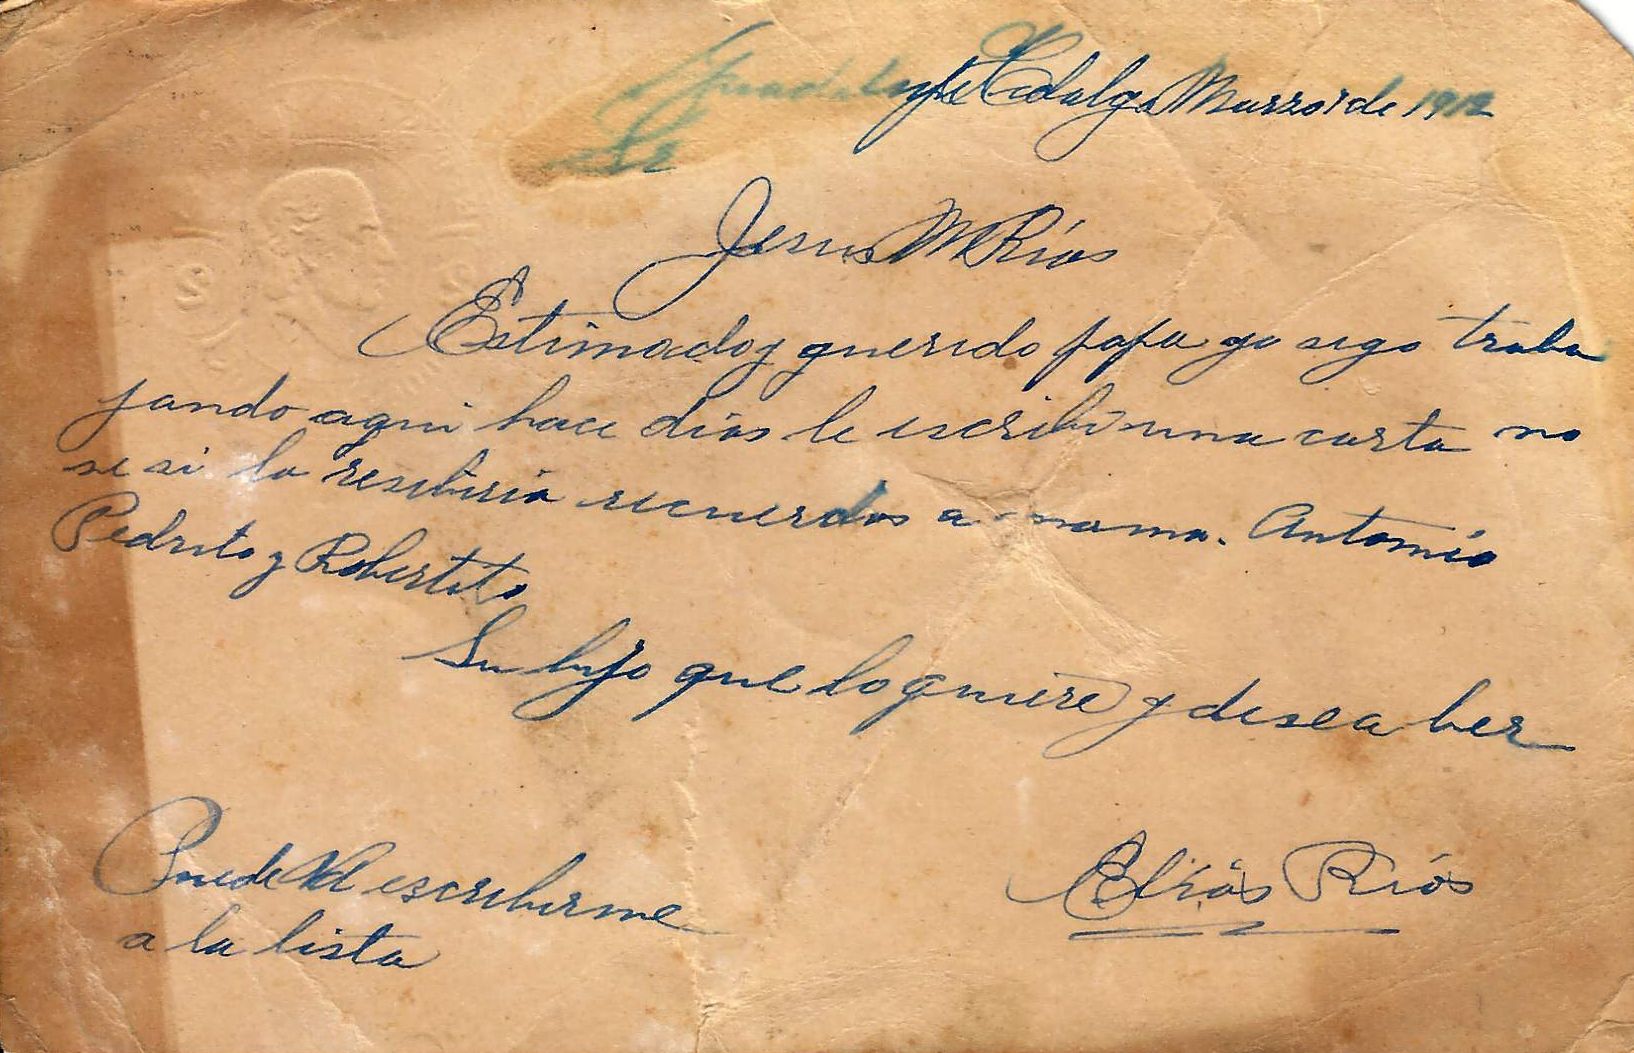 Guadalupe Hidalgo Marzo 1 de 1912
Sr
Jesus M Ríos
Estimado y querido papa yo sigo traba
jando aqui hace dias le escribi una carta no
se si la resibiria recuerdos a mama. Antonio
Pedrito y Robertito
Su hijo que lo quiere y desea ber
Elias Ríos
Puede Vd escribirme
a la lista